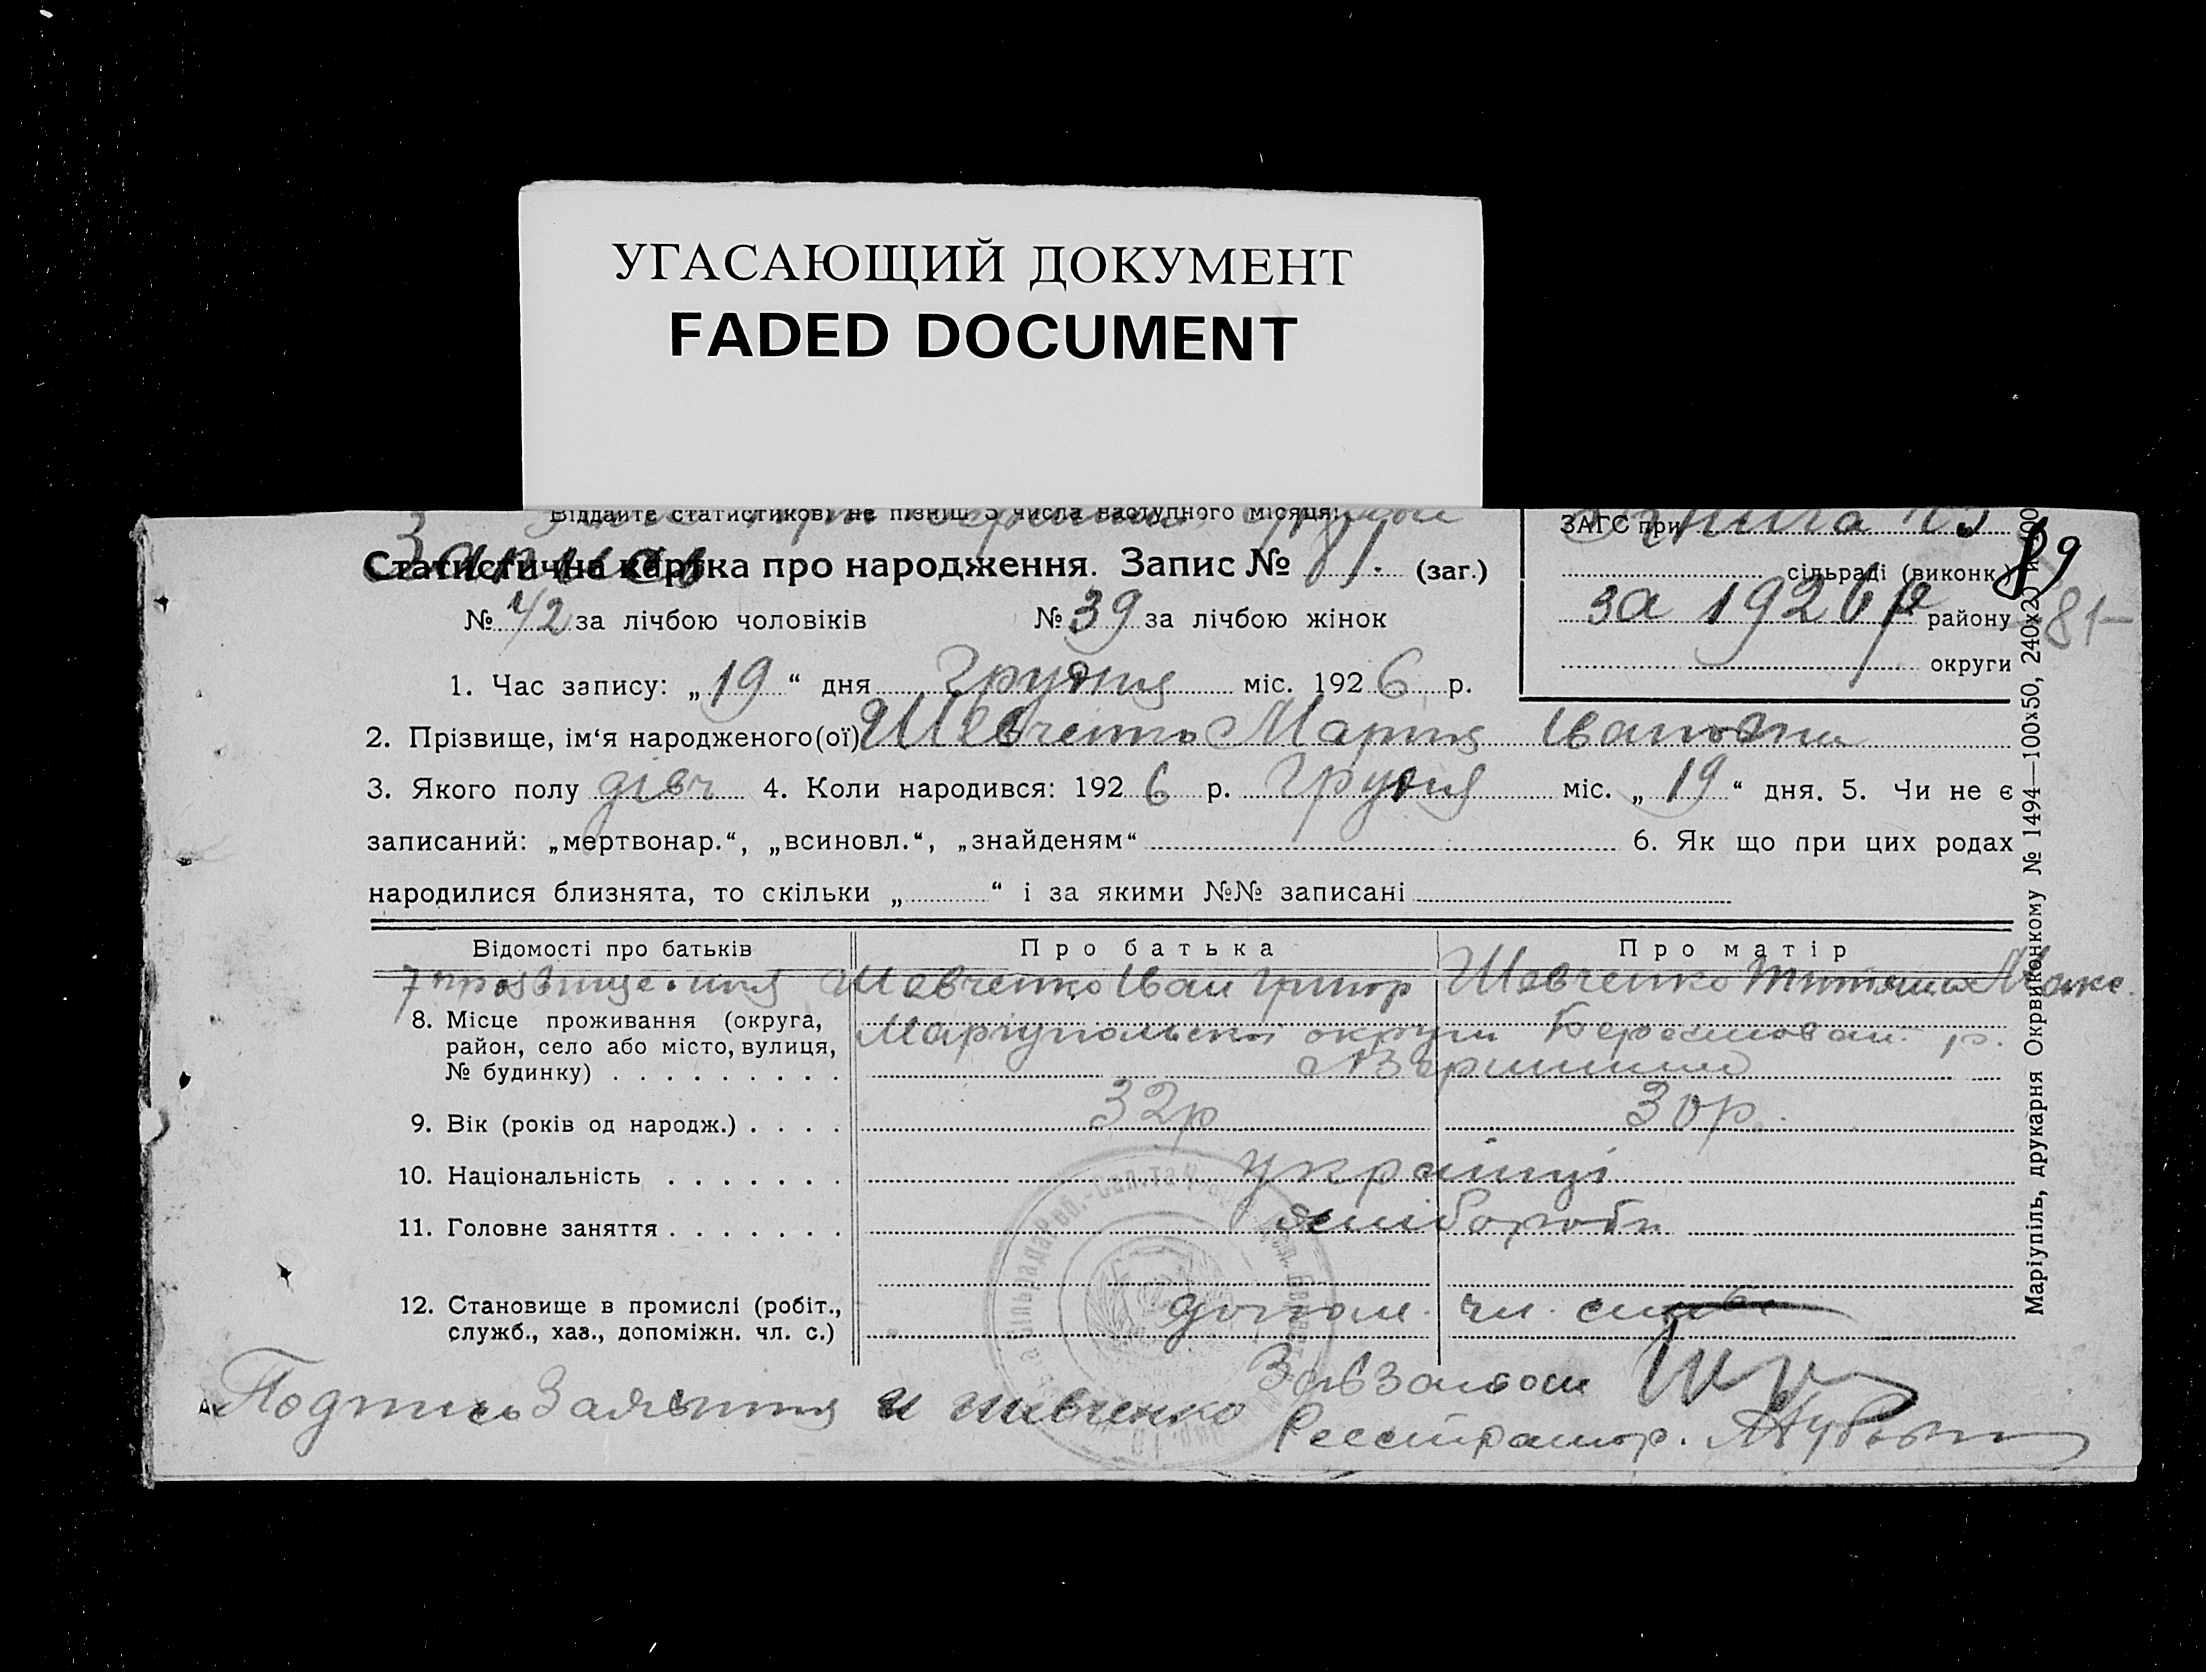 УГАСАЮЩИЙ ДОКУМЕНТ
FADED DOCUMENT
Віддайте статистикові не пізніш 5 числа наступного місяця.
ЗАГС при
Статистична картка про народження. Запис № 81. (заг.)
сільраді (виконк.)
89
№ 42 за лічбою чоловіків № 39 за лічбою жінок
за 1926 р району
81
округи
1. Час запису: „19“ дня Грудня міс. 1926 р.
2. Прізвище, ім‘я народженого(ої) Шевченко Мария Ивановна
3. Якого полу дівч 4. Коли народився: 1926 р. Грудня міс. „19“ дня. 5. Чи не є
записаний: „мертвонар.“, „всиновл.“, „знайденям“ 6. Як що при цих родах
народилися близнята, то скільки „ “ і за якими №№ записані
Відомості про батьків Про батька Про матір
7 Шевченко Иван Григор Шевченко
8. Місце проживання (округа, район, село або місто, вулиця, № будинку)
Маріупольської округи р.
9. Вік (років од народж.) 32р 30р.
10. Національність українці
11. Головне заняття хлібороби
12. Становище в промислі (робіт., служб., хаз., допоміжн. чл. с.)
допом. чл.
Завзагсом
Подпись Заявителя И Шевченко
Реєстратор.
Маріупіль, друкарня Окрвиконкому № 1494—100x50, 240x20